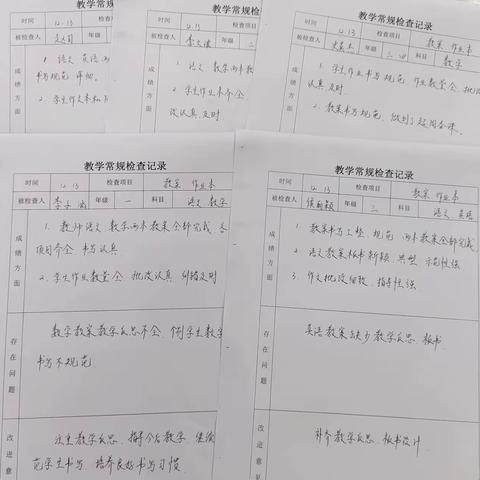 教学常规检查记录
时间 12.13 检查项目
被检查人 年级
成绩方面
1. 语文 英语两
书写规范 详细。
2. 学生作文本和书
教学常规检查记录
时间 12.13 检查项目
被检查人 年级 二
成绩方面
1. 语文 数学两本教
2. 学生作业本齐全
改认真 及时
教学常规检查记录
时间 12.13 检查项目 教案 作业本
被检查人 年级 科目 数学
成绩方面
1. 学生作业书写规范 作业数量全 批改
认真、及时.
2. 教案书写规范、做到了超周备课.
教学常规检查记录
时间 12.13 检查项目 教案 作业本
被检查人 年级 一 科目 语文 数学
成绩方面
1. 教师语文 数学两本教案全部完成 各
项目齐全 书写认真
2. 学生作业数量全 批改认真 纠错及时
存在问题
数学教案教学反思不全、个别学生数学
书写不规范
改进意
注重教学反思、指导今后教学 继续
范学生书写、培养良好书写习惯.
教学常规检查记录
时间 12.13 检查项目 教案 作业本
被检查人 年级 三 科目 语文 英语
成绩方面
1. 教案书写工整 规范 两本教案全部完成
2. 语文教案板书新颖 典型 示范性强
3. 作文批改细致、指导性强.
存在问题
英语教案缺少教学反思、板书.
改进意见
补齐教学反思、板书设计.